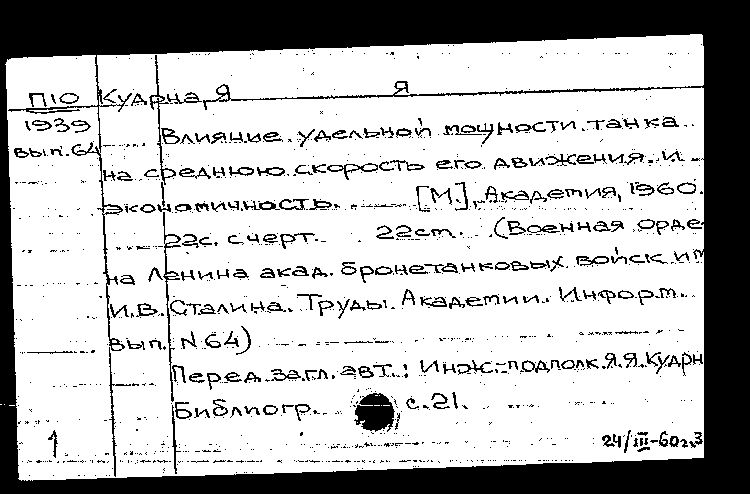 П10 Кудрна, Я Я
1939 Влияние удельной мощности танка
вып.64 на среднюю скорость его движения и
экономичность. [М.], Академия, 1960.
22с. с черт. 22см. (Военная орде
на Ленина акад. бронетанковых войск им
И.В. Сталина. Труды Академии. Информ.
вып. N 64)
Перед загл. авт.: Инж.-подполк. Я.Я. Кудрн
Библиогр. с. 21.
1 24/III-60г.З